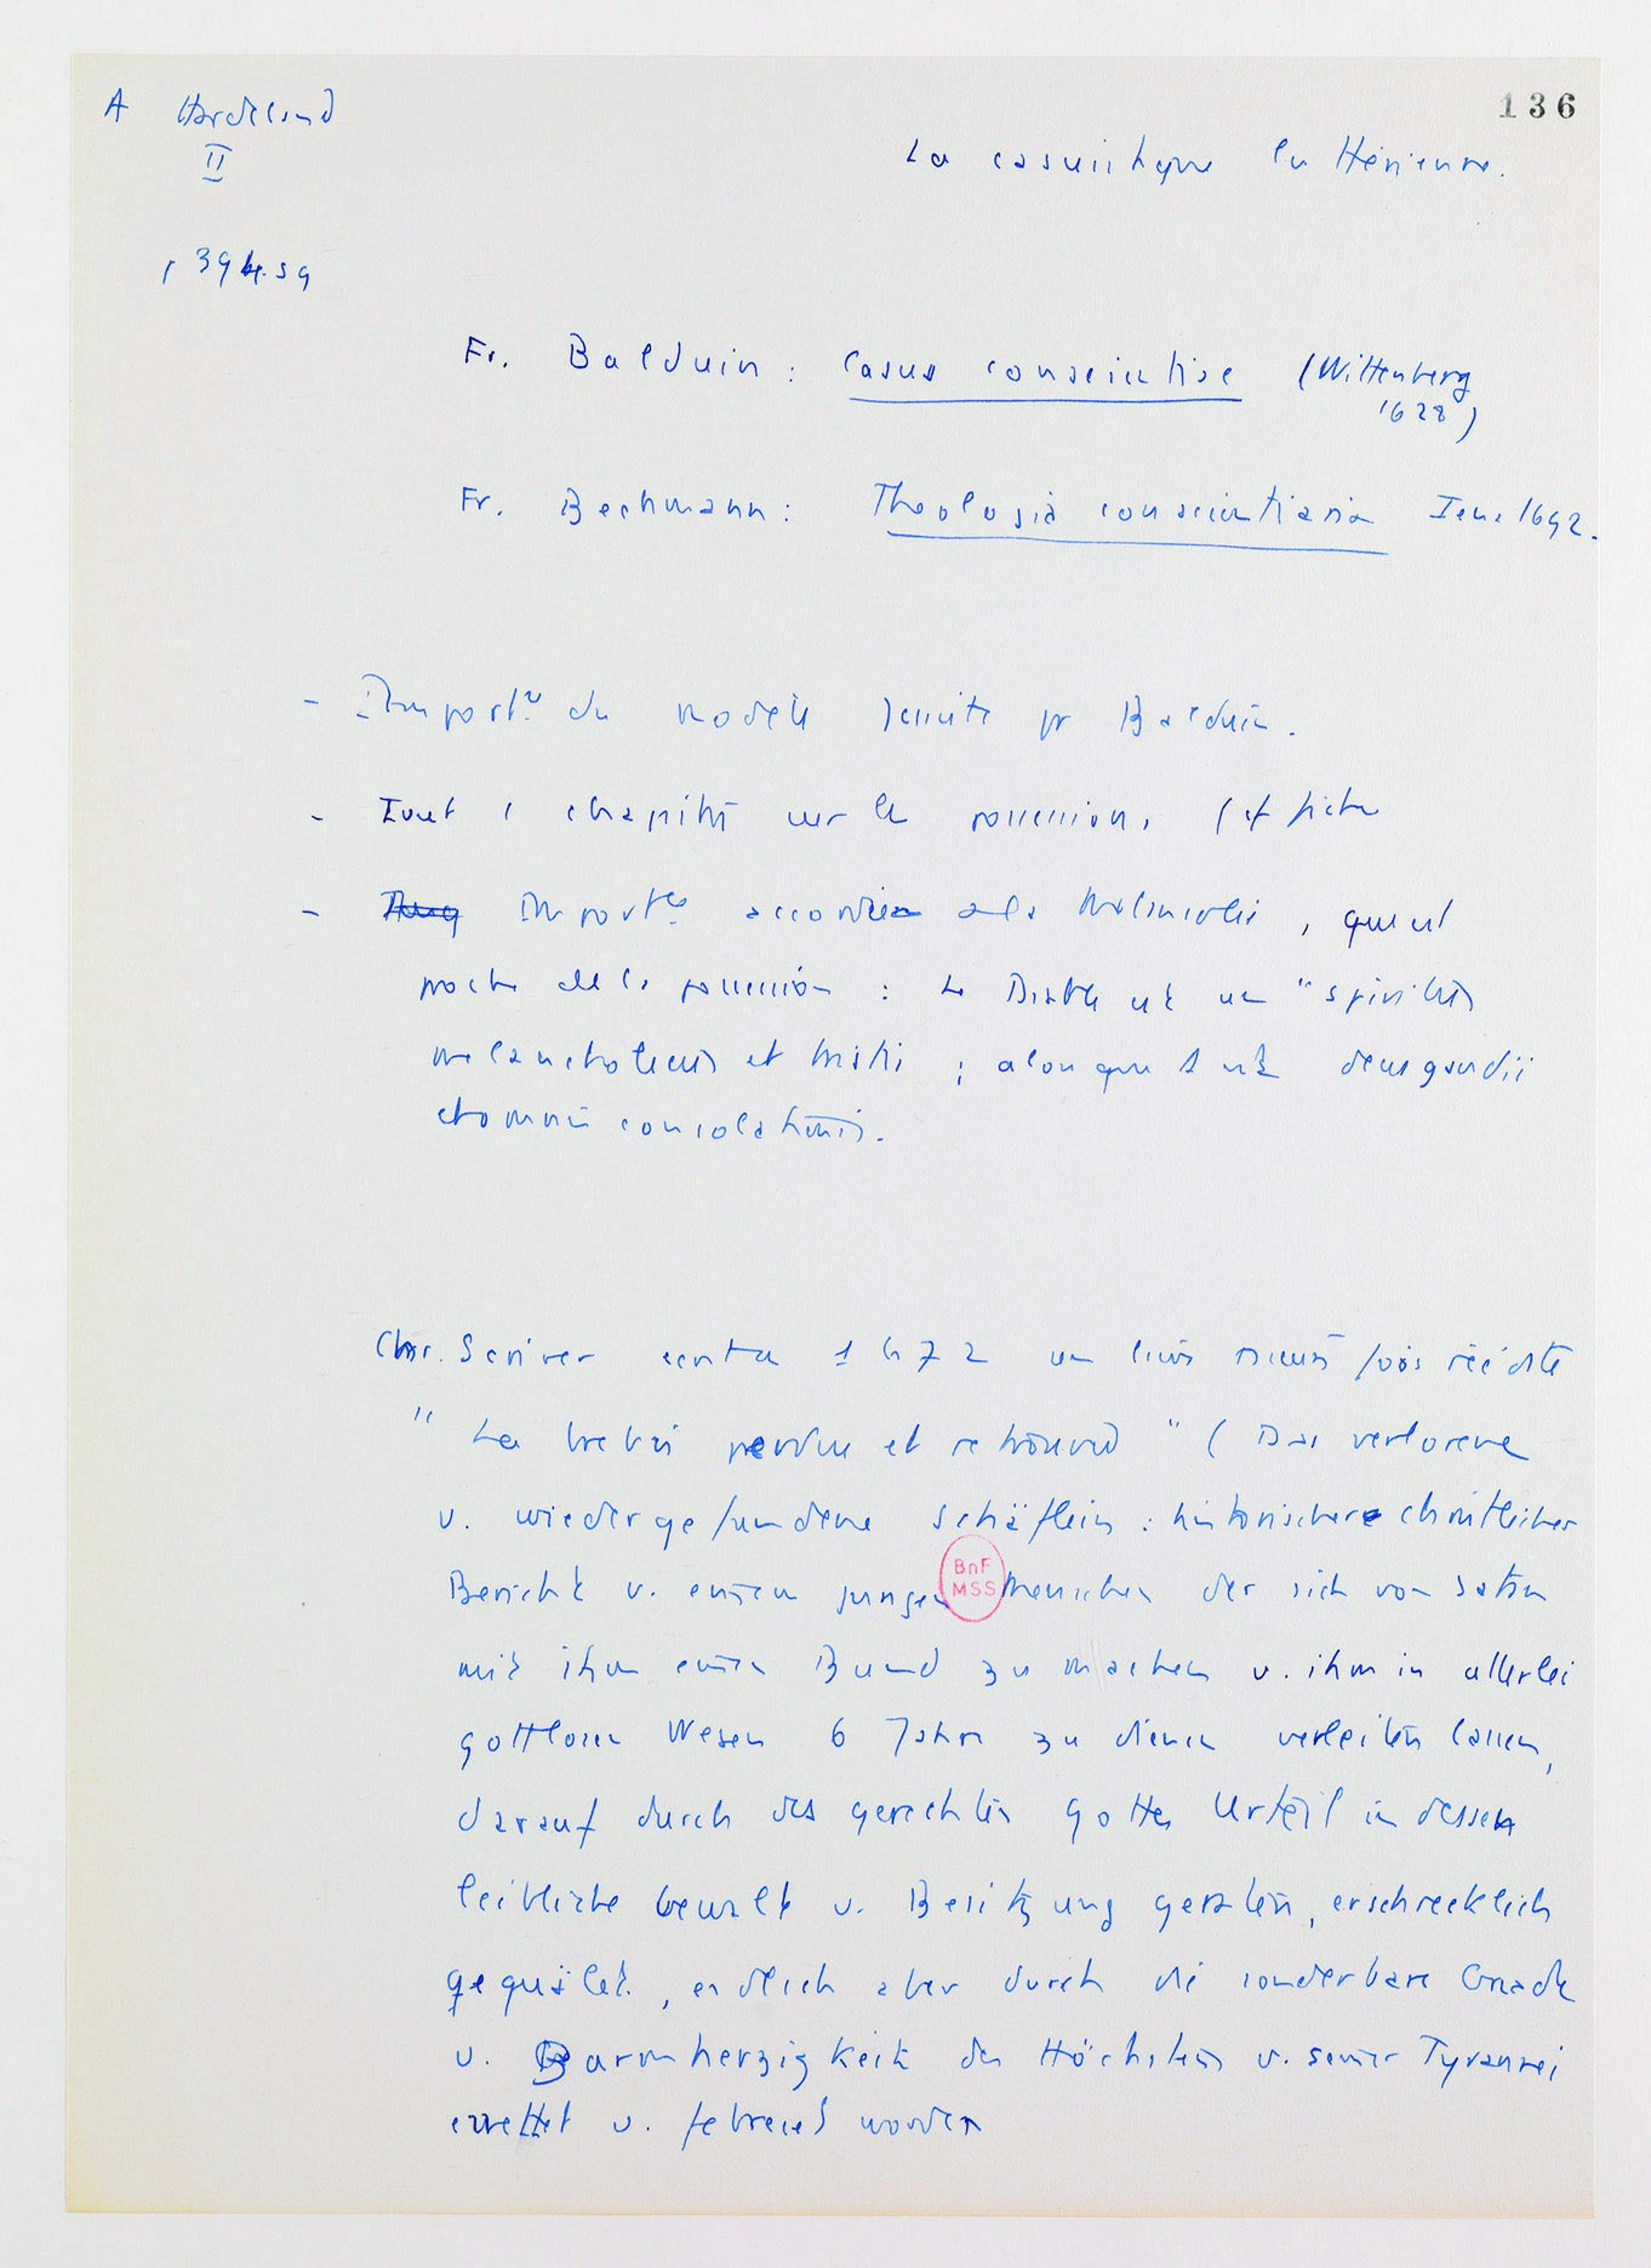 A Hardeland
136
II
La casuistique luthérienne.
p 394. sq
Fr. Balduin : Casus conscientiae (Wittenberg
1628)
Fr. Bechmann : Theologia conscientiaria Iena 1692.
- Import.ce du modèle Jésuite pr Balduin.
- Tout 1 chapitre sur la possession, (cf fiche
- Import.ce accordée à la Melancolie, qui est
proche de la possession : Le Diable est un "spiritus
melancholicus et tristis ; alors que D est deus gaudii
et omnis consolationis.
Chr. Scriver écrit en 1672 un livre plusieurs fois réédité
" La brebis perdue et retrouvée " ( Das verlorene
u. wiedergefundene Schäflein : historischer christlicher
Bericht v. einem jungen Menschen der sich von Satan
BnF
MSS
mit ihm einen Bund zu machen u. ihm in allerlei
gottlosen Wesen 6 Jahre zu dienen verleiten lassen,
darauf durch des gerechten Gottes Urteil in dessen
leibliche Gewalt u. Besitzung geraten, erschrecklich
gequälet, endlich aber durch die sonderbare Gnade
u. Barmherzigkeit des Höchsten v. seiner Tyrannei
errettet u. befreiet worden